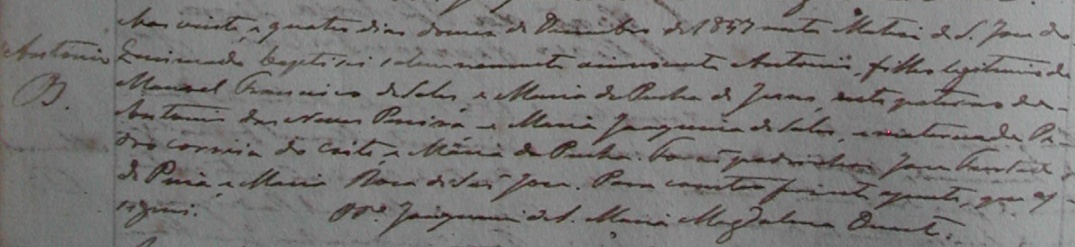 Aos vinte, e quatro dias do mez de Dezembro de 1857 nesta Matriz de S. Jose do
Antonio
B.
baptizei solemnemente innocente Antonio, filho legitimo de
Manoel Francisco de Sales, e Maria da Penha de Jesus, neto paterno de
Antonio das Neves e Maria Joaquina de Sales, e materno de Pe-
dro Correia do Couto, e Maria da Penha. Foraõ padrinhos Jose Furtado
de e Maria Rosa de Saõ Jose. Para constar fiz este assento, que as-
signei.
Joaquim de S. Maria Magdalena Duarte.